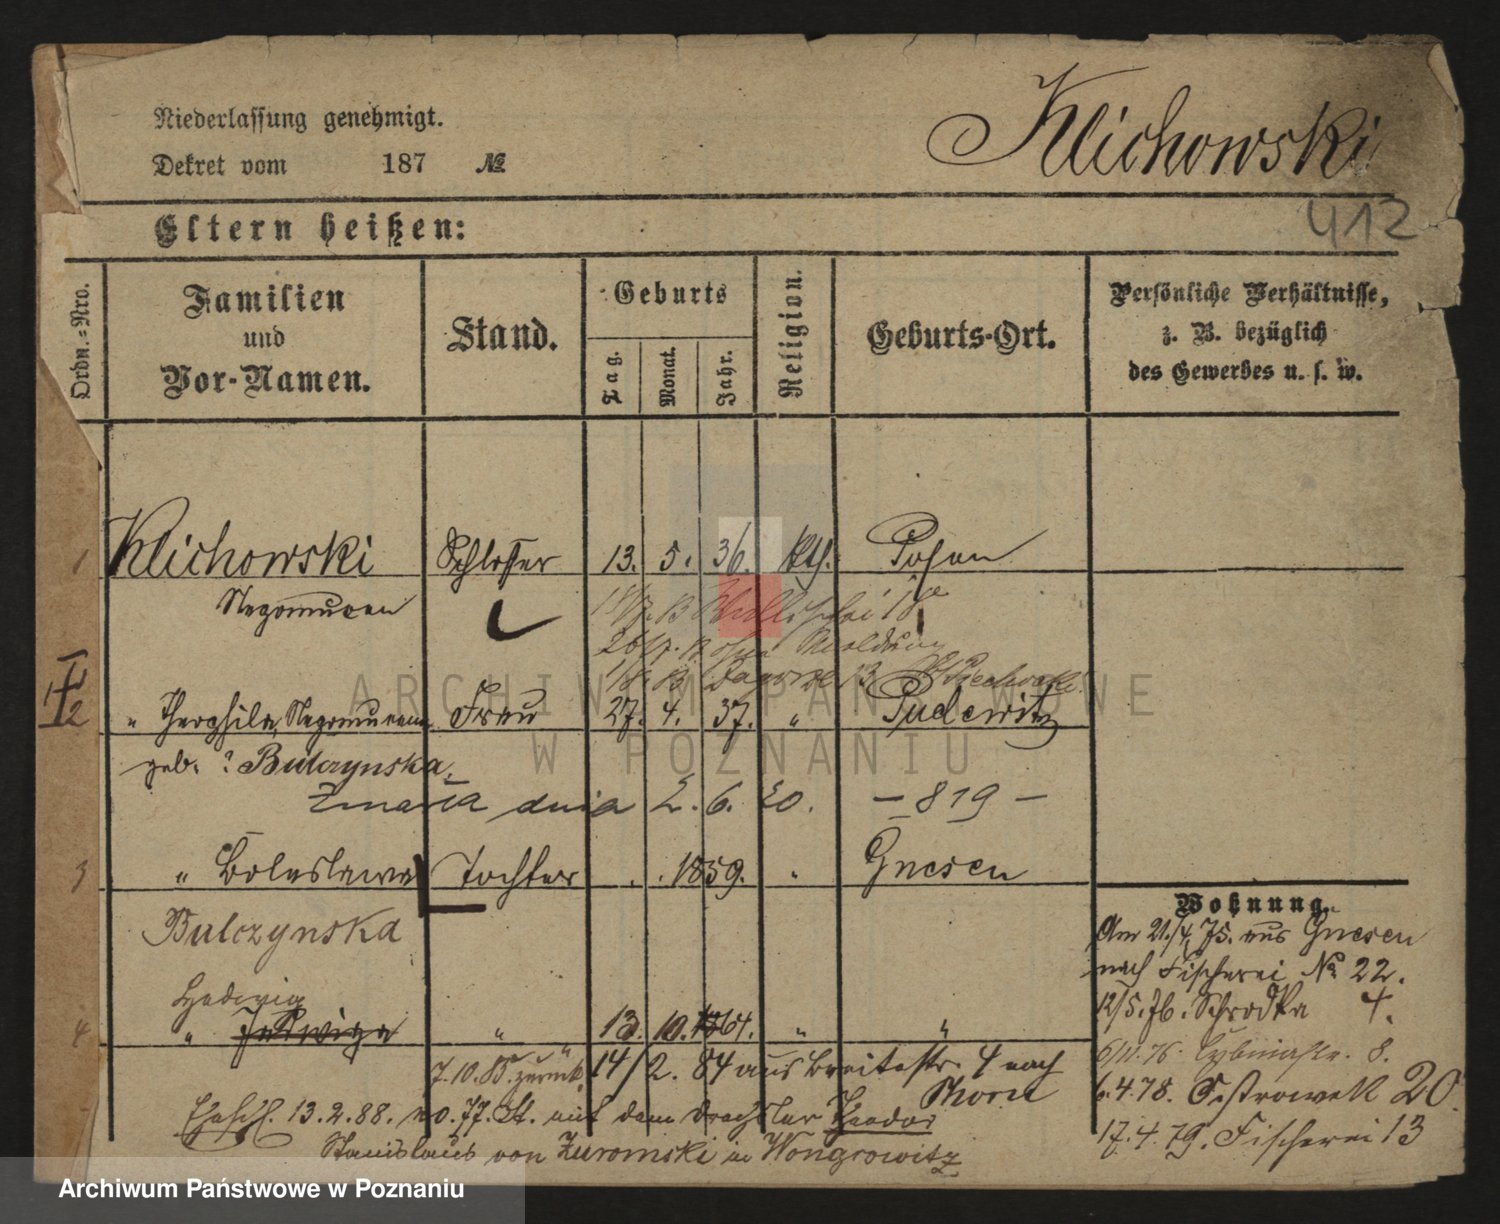 Niederlassung genehmigt.
Dekret vom 187 №
Klichowski
412
Eltern heißen:
Ordn.-Nro.
Familien und Vor-Namen.
Stand.
Geburts
Tag.
Monat.
Jahr.
Religion.
Geburts-Ort.
Persönliche Verhältnisse,
z. B. bezüglich
des Gewerbes u. s. w.
1 Klichowski Schlosser 13. 5. 36. kth. Posen
Nepomucen
2 " Theophila, Frau 27. 4. 37. " Pudewitz
geb. ? Bulczynska,
Zmarła dnia 2. 6. 20. – 819 –
3 " Boleslawa Tochter 1859. " Gnesen
Bulczynska
Hedwig
4 " Jadwiga " 13. 10. 1864. " "
7.10.85. zurück 14/2. 84 aus Breitestr. 4 nach
Thorn
Ehesch. 13.2.88. no. 77. St. mit dem Drechsler Theodor
Stanislaus von Zuromski in Wongrowitz
Wohnung.
Am 21./4. 75. aus Gnesen
nach Fischerei № 22.
12/5. 76. Schrodka 4.
6/11. 76. Cybinastr. 8.
6.4.78. Ostrowek 20.
17.4.79. Fischerei 13
ARCHIWUM PAŃSTWOWE
W POZNANIU
Archiwum Państwowe w Poznaniu